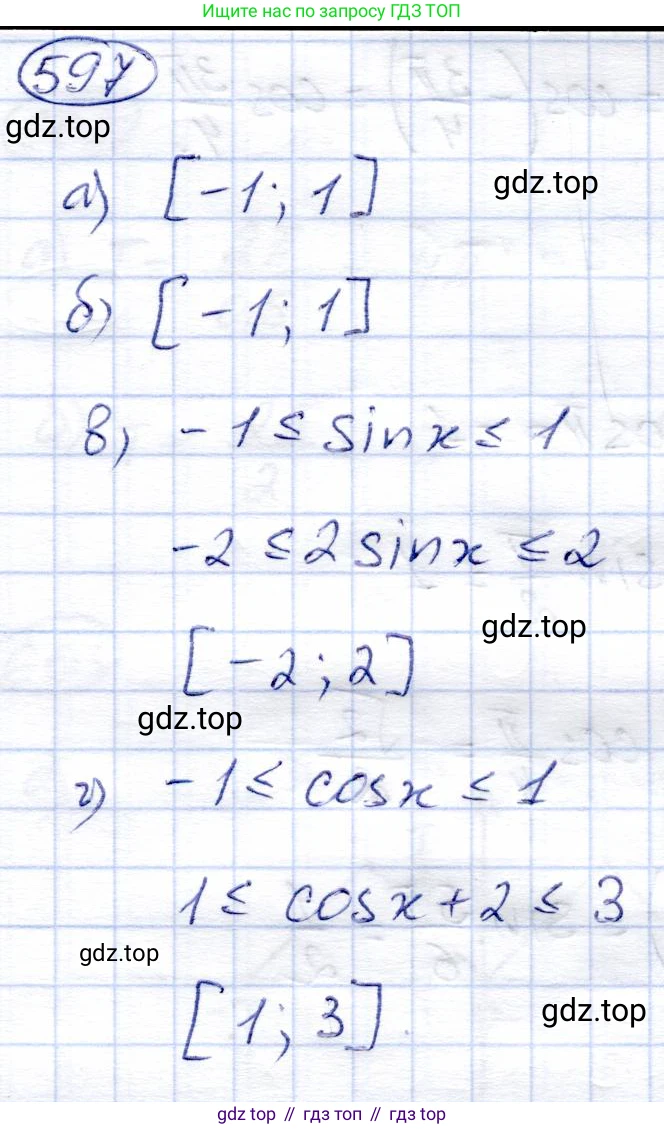 Ищите нас по запросу ГДЗ ТОП
597
gdz.top
а) [-1; 1]
gdz.top
б) [-1; 1]
в) -1 ≤ sinx ≤ 1
-2 ≤ 2sinx ≤ 2
gdz.top
[-2; 2]
gdz.top
г) -1 ≤ cosx ≤ 1
1 ≤ cosx + 2 ≤ 3
gdz.top
[1; 3].
gdz.top
gdz top // гдз топ // гдз top